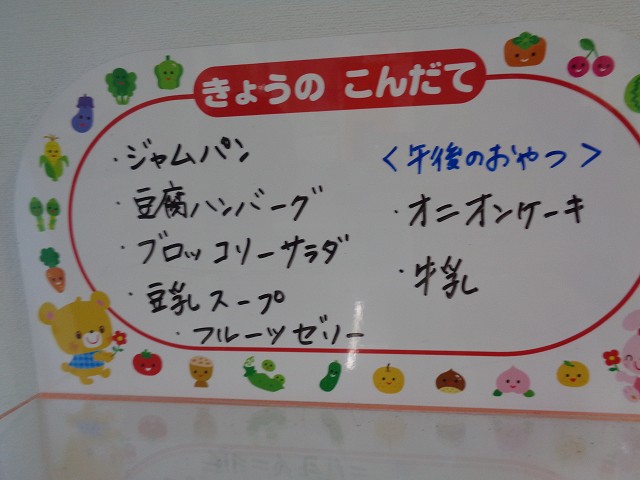 きょうの こんだて
・ジャムパン
・豆腐ハンバーグ
・ブロッコリーサラダ
・豆乳スープ
・フルーツゼリー
<午後のおやつ>
・オニオンケーキ
・牛乳